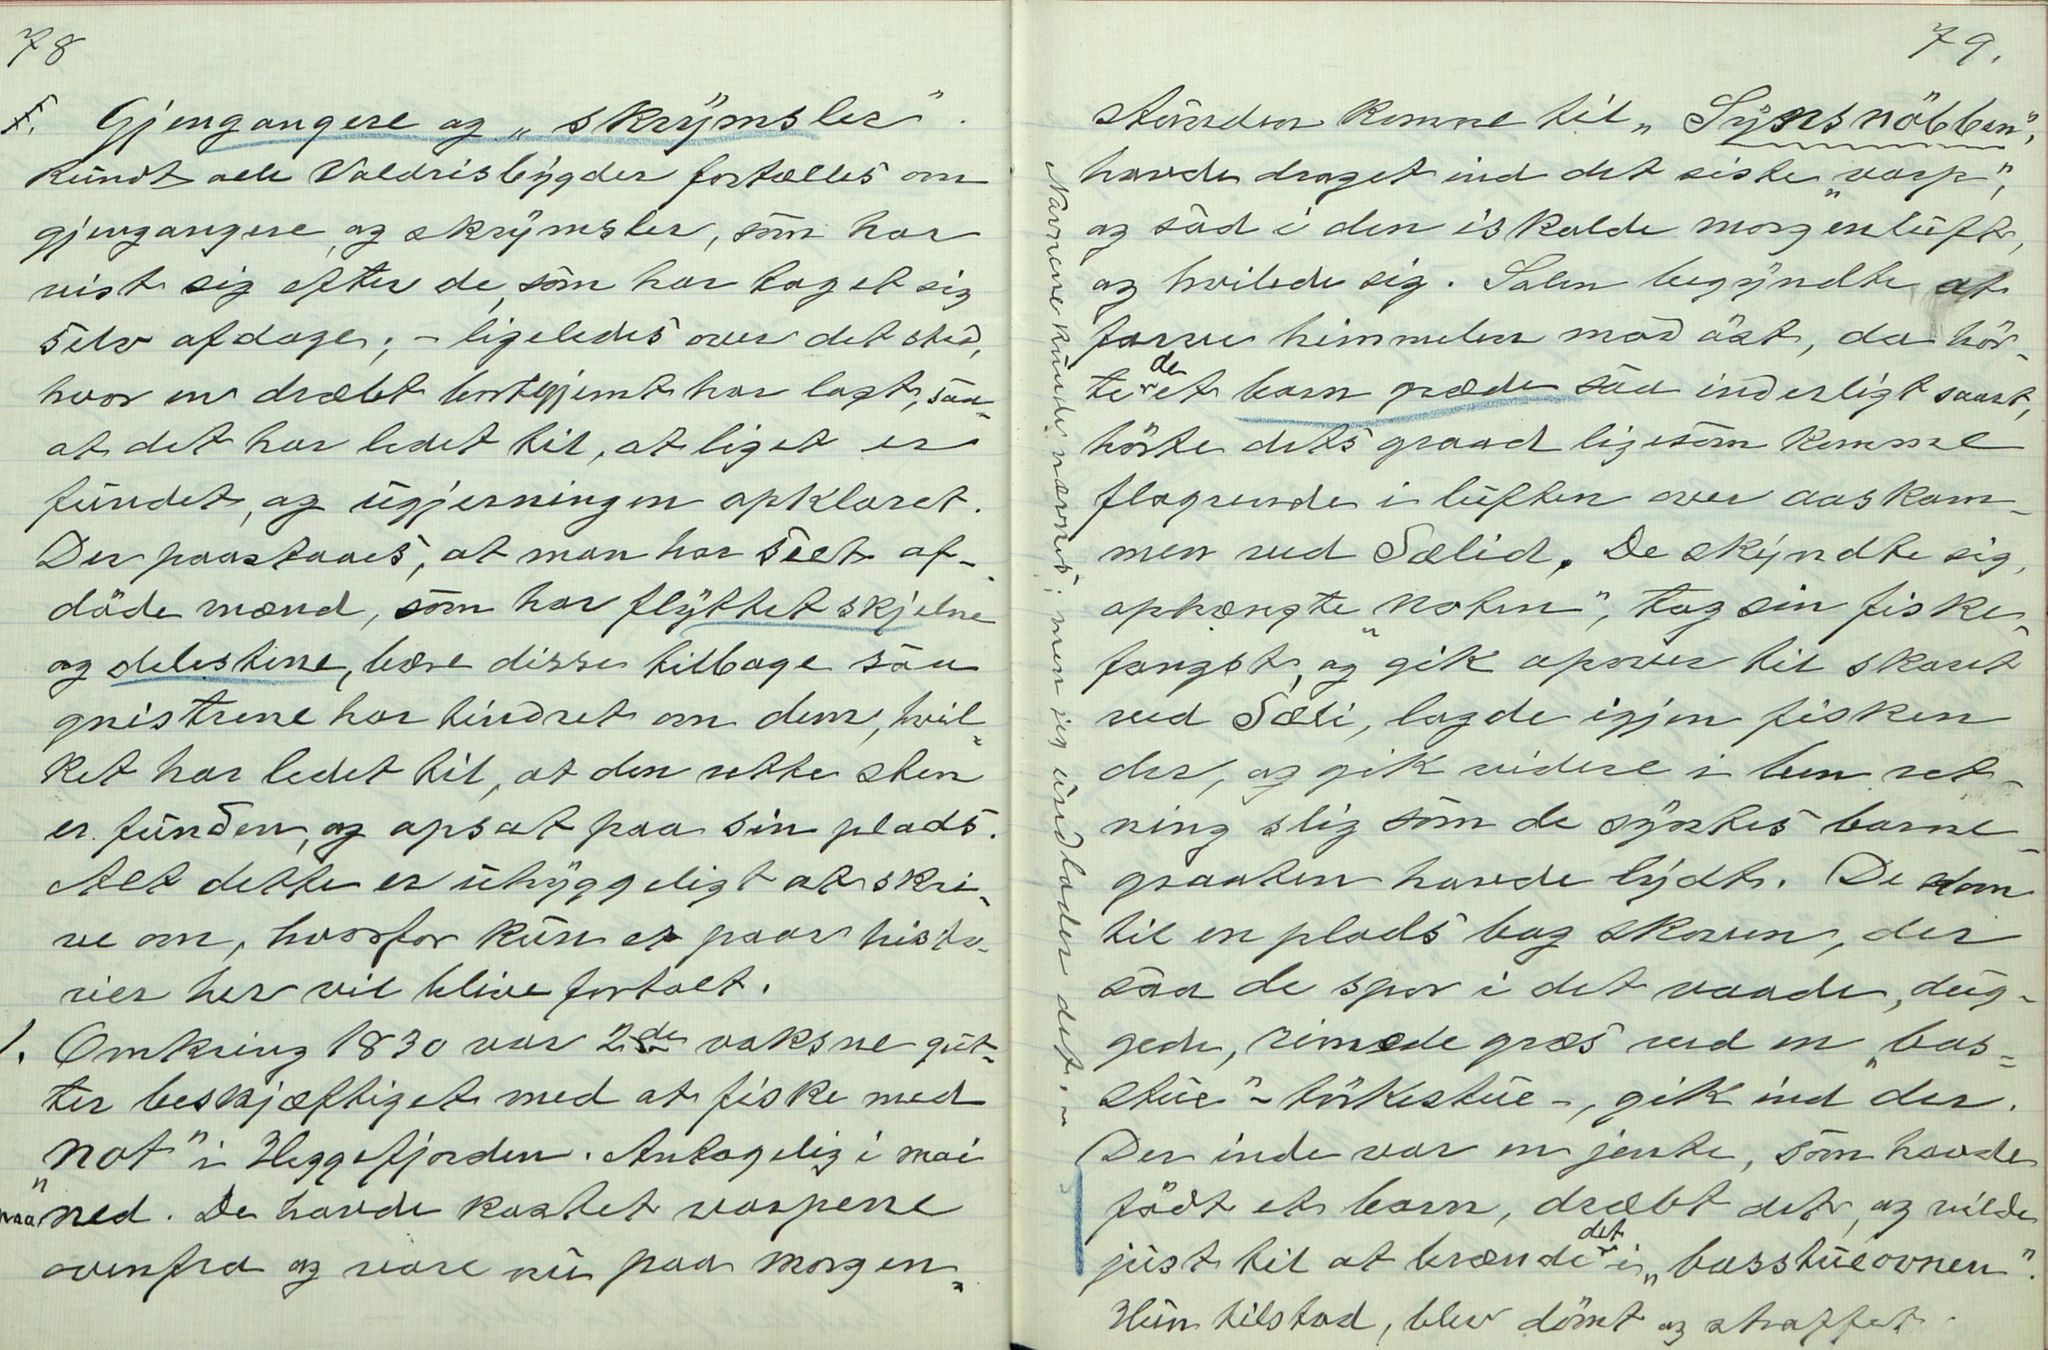 78
f. Gjengangere og „skrymsler".
Rundt alle Valdrisbygder fortælles om
gjengangere og skrymsler, som har
vist sig efter de, som har taget sig
selv afdage; - ligeledes over det sted,
hvor en dræbt bortgjemt har lagt, saa-
at det har ledet til, at liget er
fundet, og ugjerningen opklaret.
Der paastaaes, at man har seet af-
døde mænd, som har flyttet skjelne
og delestene, bære disse tilbage saa
gnistrene har tindret om dem, hvil-
ket har ledet til, at den rette sten
er funden, og opsat paa sin plads.
Alt dette er uhyggeligt at skri-
ve om, hvorfor kun et paar histo-
rier her vil blive fortalt.
1. Omkring 1830 var 2de voksne gut-
ter beskjæftiget med at fiske med
„not" i Heggefjorden. Antagelig i mai
maaned. De havde kastet varpene
ovenfra og vare nu paa morgen-
79.
stunden komne til „Synsnöbben",
havde draget ind det siste „varp",
og sad i den iskalde morgenluft,
og hvilede sig. Solen begyndte at
farve himmelen mod øst, da hør-
te de et barn græde saa inderligt saart,
hørte dets graad ligesom komme
flagrende i luften over aaskam-
men ved Sælid. De skyndte sig,
ophængte „noten", tog sin fiske-
fangst, og gik opover til skaret
ved Sæli, lagde igjen fisken
der, og gik videre i ben ret-
ning slig som de syntes barne-
graaten havde lydt. De kom
til en plads bag skoven, der
saa de spor i det vaade, dug-
gede, rimede græs ved en „bas-
stue" - törkestue -, gik ind der.
Der inde var en jente, som havde
født et barn, dræbt det, og vilde
just til at brænde det i „basstueovnen".
Hun tilstod, blev dömt og straffet.
Navnene kunde nævnes; men jeg undlader det. -